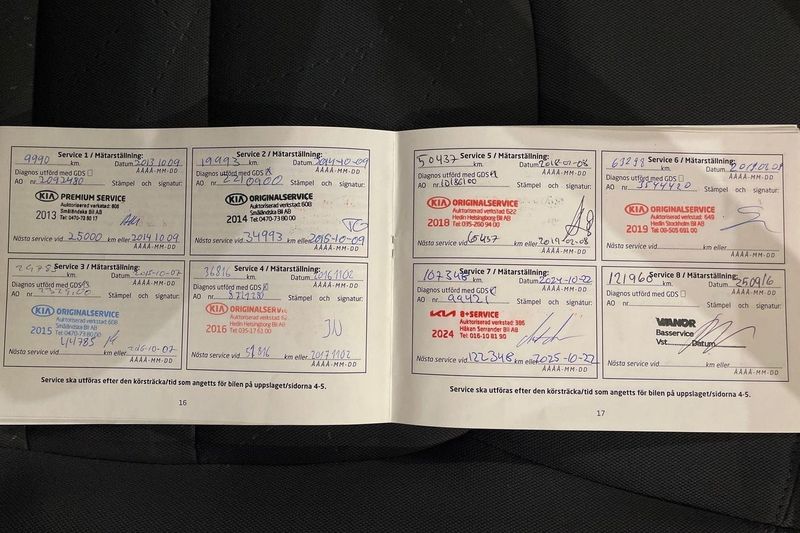 Service 1 / Mätarställning:
9990 km. Datum 2013 10 09
ÅÅÅÅ-MM-DD
Diagnos utförd med GDS
AO nr. 2092480 Stämpel och signatur:
KIA PREMIUM SERVICE
Auktoriserad verkstad: 608
2013 Småländska Bil AB
Tel: 0470-73 80 17
Nästa service vid 25000 km eller 2014 10 09
ÅÅÅÅ-MM-DD
Service 2 / Mätarställning:
19993 km. Datum 2014-10-09
ÅÅÅÅ-MM-DD
Diagnos utförd med GDS
AO nr. 2210900 Stämpel och signatur:
KIA ORIGINALSERVICE
Auktoriserad verkstad: 608
2014 Småländska Bil AB
Tel: 0470-73 80 00
Nästa service vid 34993 km eller 2015-10-09
ÅÅÅÅ-MM-DD
Service 3 / Mätarställning:
km. Datum 2015-10-07
ÅÅÅÅ-MM-DD
Diagnos utförd med GDS
AO nr. Stämpel och signatur:
KIA ORIGINALSERVICE
Auktoriserad verkstad 608
2015 Småländska Bil AB
Tel 0470-73 80 00
44785
Nästa service vid km eller 2016-10-07
ÅÅÅÅ-MM-DD
Service 4 / Mätarställning:
36816 km. Datum 2016 1102
ÅÅÅÅ-MM-DD
Diagnos utförd med GDS
AO nr. Stämpel och signatur:
KIA ORIGINALSERVICE
Auktoriserad verkstad
2016 Hedin Helsingborg Bil AB
JN
Nästa service vid 51816 km eller 2017 1102
ÅÅÅÅ-MM-DD
Service ska utföras efter den körsträcka/tid som angetts för bilen på uppslaget/sidorna 4-5.
16
Service 5 / Mätarställning:
50437 km. Datum 2018-02-08
ÅÅÅÅ-MM-DD
Diagnos utförd med GDS
AO nr. Stämpel och signatur:
KIA ORIGINALSERVICE
Auktoriserad verkstad 522
2018 Hedin Helsingborg Bil AB
Tel 035-290 94 00
Nästa service vid 65437 km eller 2019-02-08
ÅÅÅÅ-MM-DD
Service 6 / Mätarställning:
63238 km. Datum
ÅÅÅÅ-MM-DD
Diagnos utförd med GDS
AO nr. 3544420 Stämpel och signatur:
KIA ORIGINALSERVICE
Auktoriserad verkstad: 549
2019 Hedin Stockholm Bil AB
Tel: 08-505 691 00
Nästa service vid km eller
ÅÅÅÅ-MM-DD
Service 7 / Mätarställning:
107348 km. Datum 2024-10-22
ÅÅÅÅ-MM-DD
Diagnos utförd med GDS
AO nr. 99421 Stämpel och signatur:
KIA 8+SERVICE
Auktoriserad verkstad: 386
2024 Håkan Senander Bil AB
Tel: 016-10 81 90
Nästa service vid 122348 km eller 2025-10-22
ÅÅÅÅ-MM-DD
Service 8 / Mätarställning:
121960 km. Datum 250916
ÅÅÅÅ-MM-DD
Diagnos utförd med GDS
AO nr. Stämpel och signatur:
VIANOR
Basservice
Vst Datum
Nästa service vid km eller
ÅÅÅÅ-MM-DD
Service ska utföras efter den körsträcka/tid som angetts för bilen på uppslaget/sidorna 4-5.
17